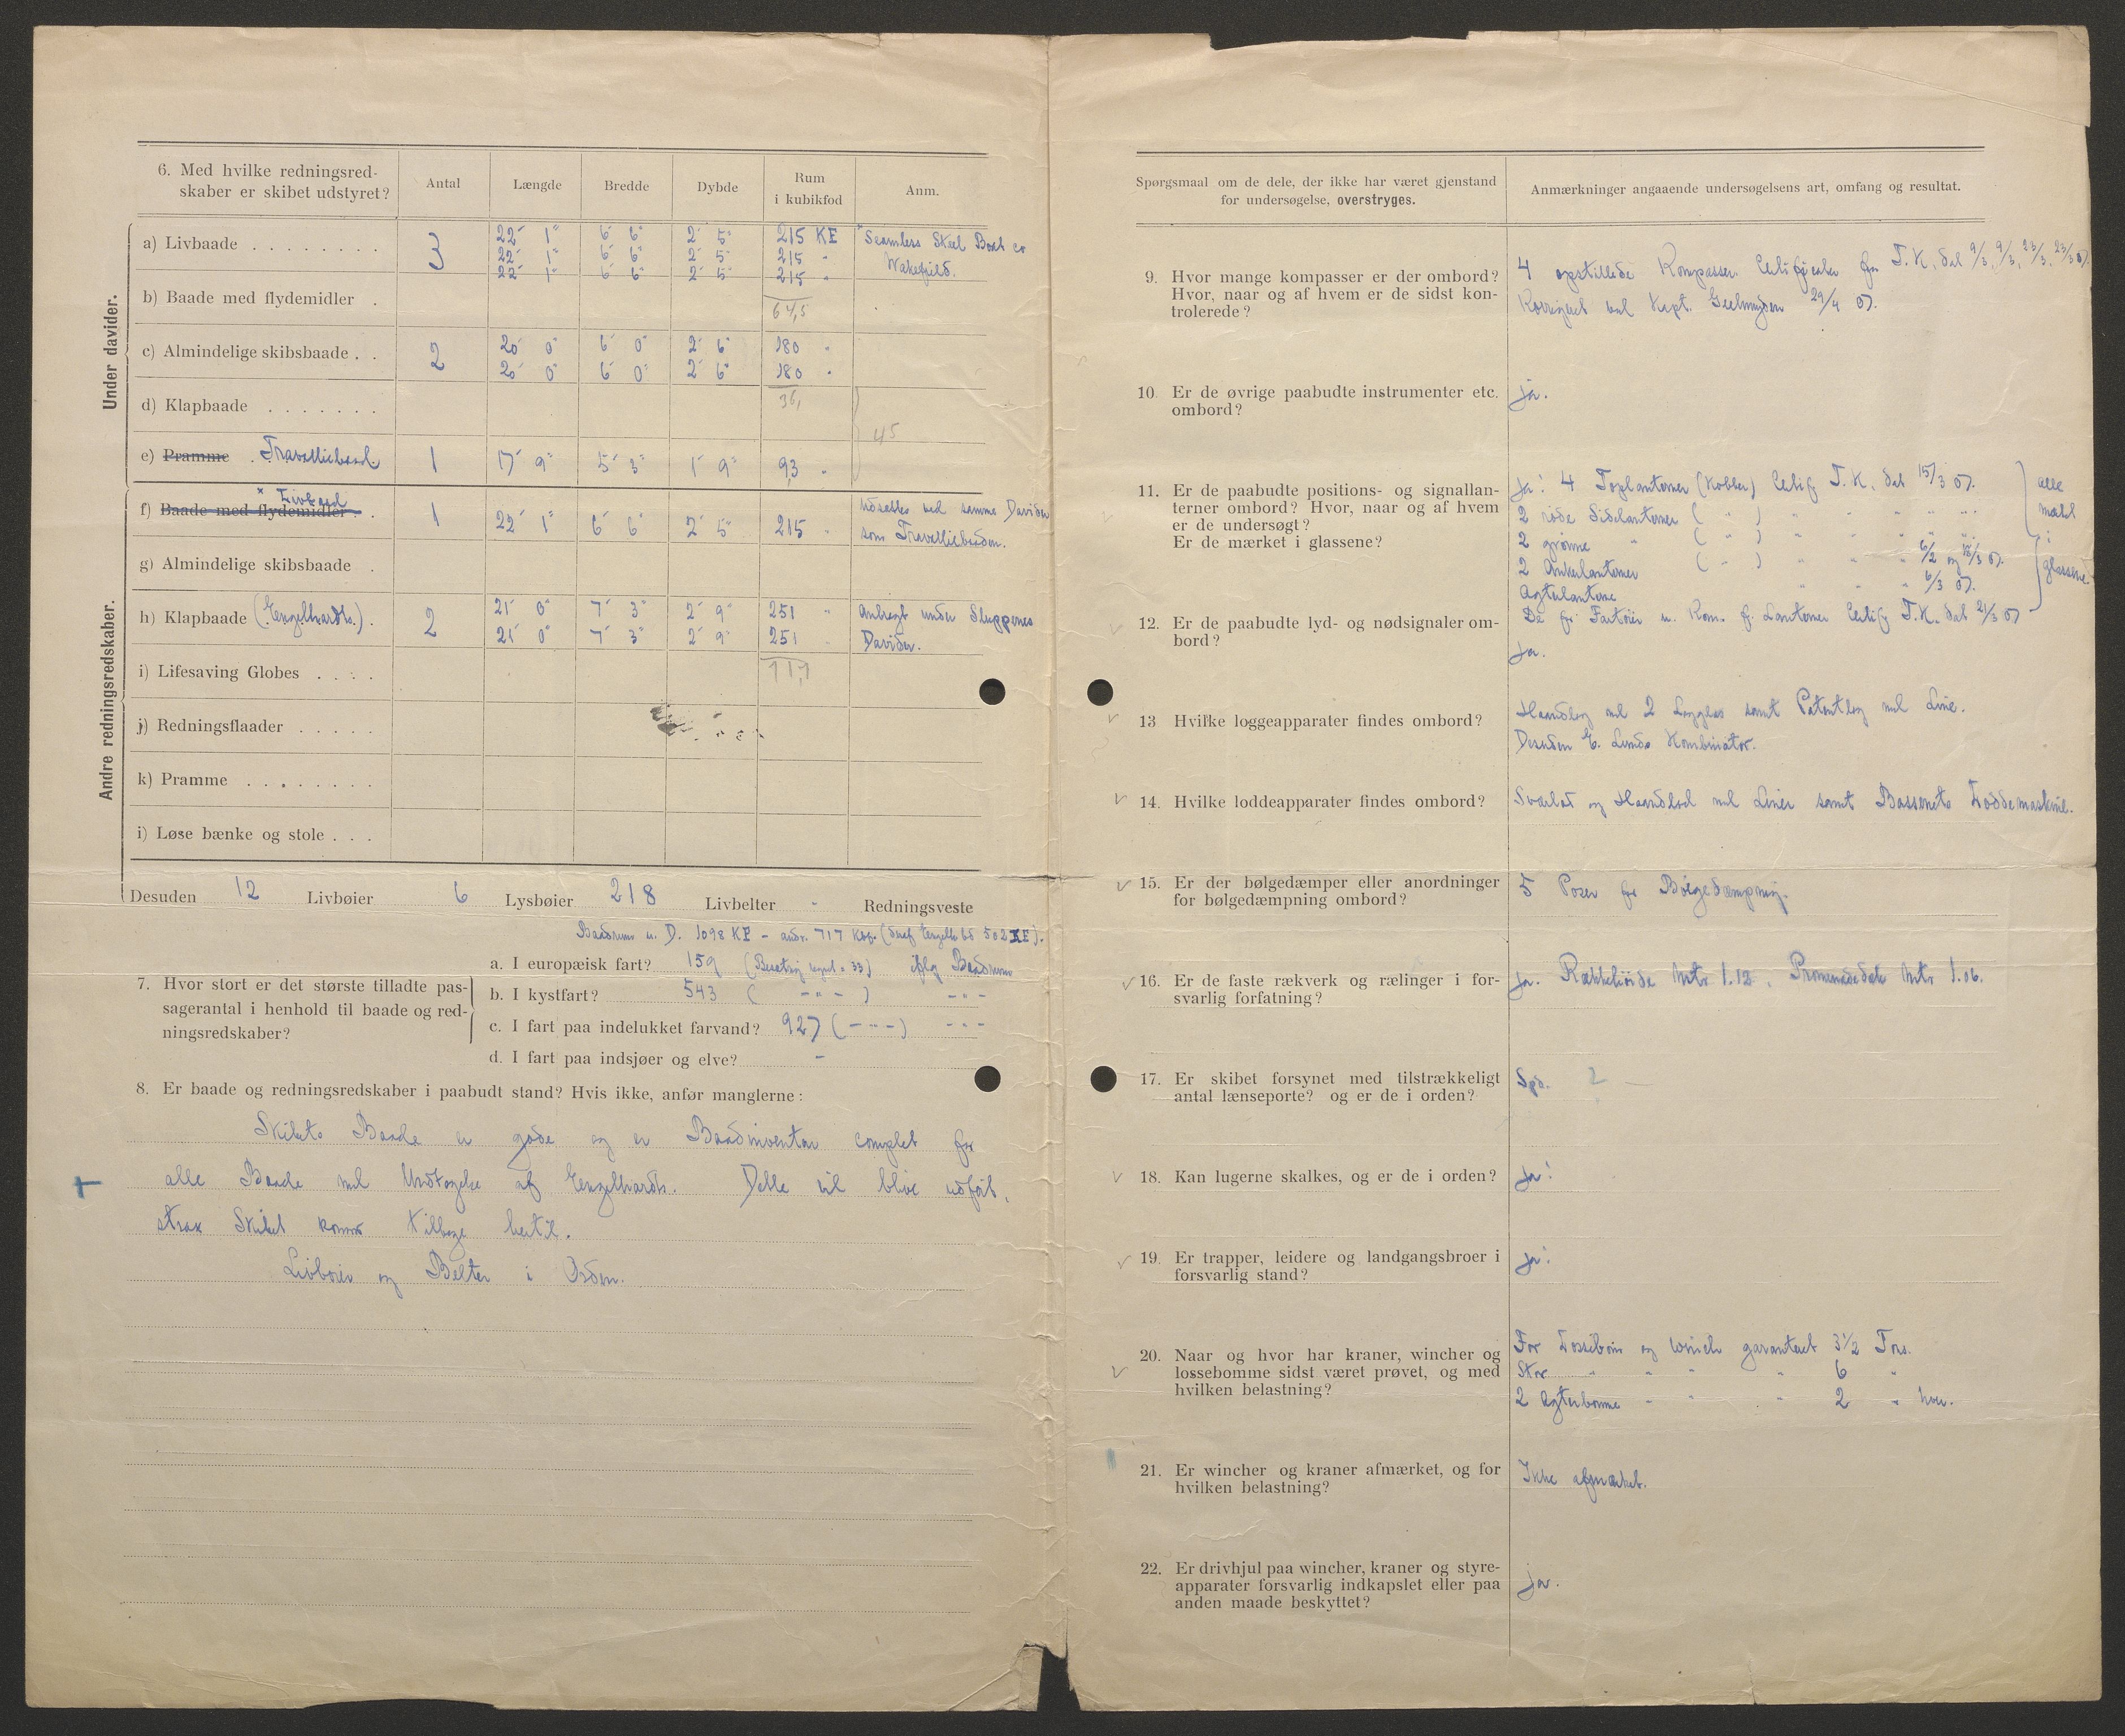 6. Med hvilke redningsred-
skaber er skibet udstyret?
Antal
Længde
Bredde
Dybde
Rum
i kubikfod
Anm.
Under davider.
a) Livbaade . . . . . . . . 3 22' 1" 6' 6" 2' 5" 215 KF "Seamless Steel Boat Co
22' 1" 6' 6" 2' 5" 215 " Wakefield.
22' 1" 6' 6" 2' 5" 215 "
b) Baade med flydemidler . 64,5
c) Almindelige skibsbaade . . 2 20' 0" 6' 0" 2' 6" 180 "
20' 0" 6' 0" 2' 6" 180 "
d) Klapbaade . . . . . . . 36,
45
e) Pramme . Travalliebaad. 1 17' 9" 5' 3" 1' 9" 93 "
Andre redningsredskaber.
" Livbaad
f) Baade med flydemidler . . 1 22' 1" 6' 6" 2' 5" 215 " udsættes ved samme Davider
som Travalliebaaden.
g) Almindelige skibsbaade .
h) Klapbaade (Engelhardts.) . 2 21' 0" 7' 3" 2' 9" 251 " Anbragt under Sluppenes
21' 0" 7' 3" 2' 9" 251 " Davider.
i) Lifesaving Globes . . . . 717
j) Redningsflaader . . . . .
k) Pramme . . . . . . . .
i) Løse bænke og stole . . .
Desuden 12 Livbøier 6 Lysbøier 218 Livbelter - Redningsveste
Baadrum u. D. 1098 KF - andr. 717 Kbf. (deraf 502 KF).
7. Hvor stort er det største tilladte pas-
sagerantal i henhold til baade og red-
ningsredskaber?
a. I europæisk fart? 159 (Besætng regnet = 33) iflg Baadrum
b. I kystfart? 543 ( -"- ) -"-
c. I fart paa indelukket farvand? 927 (-"-) -"-
d. I fart paa indsjøer og elve? -
8. Er baade og redningsredskaber i paabudt stand? Hvis ikke, anfør manglerne:
Skibets Baade er gode og er Baadinventar complet for
alle Baade med Undtagelse af Engelhardts. Dette vil blive udført,
strax Skibet kommer tilbage hertil.
Livbøier og Belter i Orden.
Spørgsmaal om de dele, der ikke har været gjenstand
for undersøgelse, overstryges.
Anmærkninger angaaende undersøgelsens art, omfang og resultat.
9. Hvor mange kompasser er der ombord?
Hvor, naar og af hvem er de sidst kon-
trolerede?
4 opstillede Kompasser. Certificater fra T.K. dat 9/3, 9/3, 23/3, 23/3 07.
Korrigeret ved Kapt. Geelmuyden 29/4 07.
10. Er de øvrige paabudte instrumenter etc.
ombord?
ja.
11. Er de paabudte positions- og signallan-
terner ombord? Hvor, naar og af hvem
er de undersøgt?
Er de mærket i glassene?
ja! 4 Toplanterner (Kobber) Certif T.K. dat 15/3 07.
2 røde Sidelanterner ( " ) " " " " "
2 grønne " ( " ) " " " " "
2 Ankerlanterner ( " ) " " " 6/2 og 18/3 07.
Agterlanterne " " " 6/3 07.
De fri Fartøier u. Kom. f. Lanterner Certif T.K. dat 21/3 07
alle
mærket
i
glassene
12. Er de paabudte lyd- og nødsignaler om-
bord?
ja.
13 Hvilke loggeapparater findes ombord?
Haandlog med 2 Logglas samt Patentlog med Line.
Desuden E. Lunds Kombinator.
14. Hvilke loddeapparater findes ombord?
Sværlod og Haandlod med Liner samt Bassenets Loddemaskine.
15. Er der bølgedæmper eller anordninger
for bølgedæmpning ombord?
5 Poser for Bølgedæmpning.
16. Er de faste rækverk og rælinger i for-
svarlig forfatning?
ja. Rækkehøide Mtr 1.12. Promenadedæk Mtr 1.06.
17. Er skibet forsynet med tilstrækkeligt
antal lænseporte? og er de i orden?
Spd. 2 —
18. Kan lugerne skalkes, og er de i orden?
ja!
19. Er trapper, leidere og landgangsbroer i
forsvarlig stand?
ja!
20. Naar og hvor har kraner, wincher og
lossebomme sidst været prøvet, og med
hvilken belastning?
For Lossebom og winch garanteret 3 1/2 Tons.
Stor " " " " 6 "
2 Agterbomme " " " 2 " hver.
21. Er wincher og kraner afmærket, og for
hvilken belastning?
Ikke afmærket.
22. Er drivhjul paa wincher, kraner og styre-
apparater forsvarlig indkapslet eller paa
anden maade beskyttet?
ja.